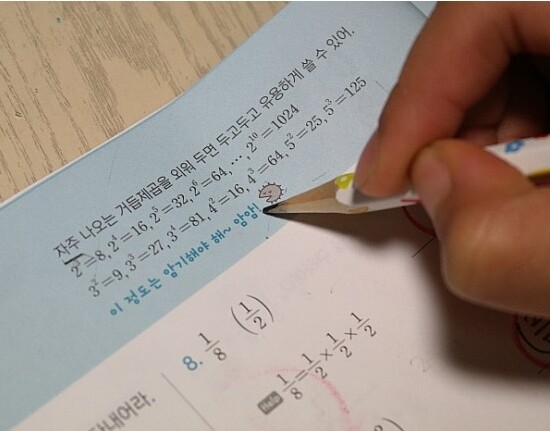 자주 나오는 거듭제곱을 외워 두면 두고두고 유용하게 쓸 수 있어.
2³=8, 2⁴=16, 2⁵=32, 2⁶=64, ⋯, 2¹⁰=1024
3²=9, 3³=27, 3⁴=81, 4²=16, 4³=64, 5²=25, 5³=125
이 정도는 암기해야 해~ 암암!
8. 1/8 (1/2)
Help 1/8=1/2×1/2×1/2
내어라.